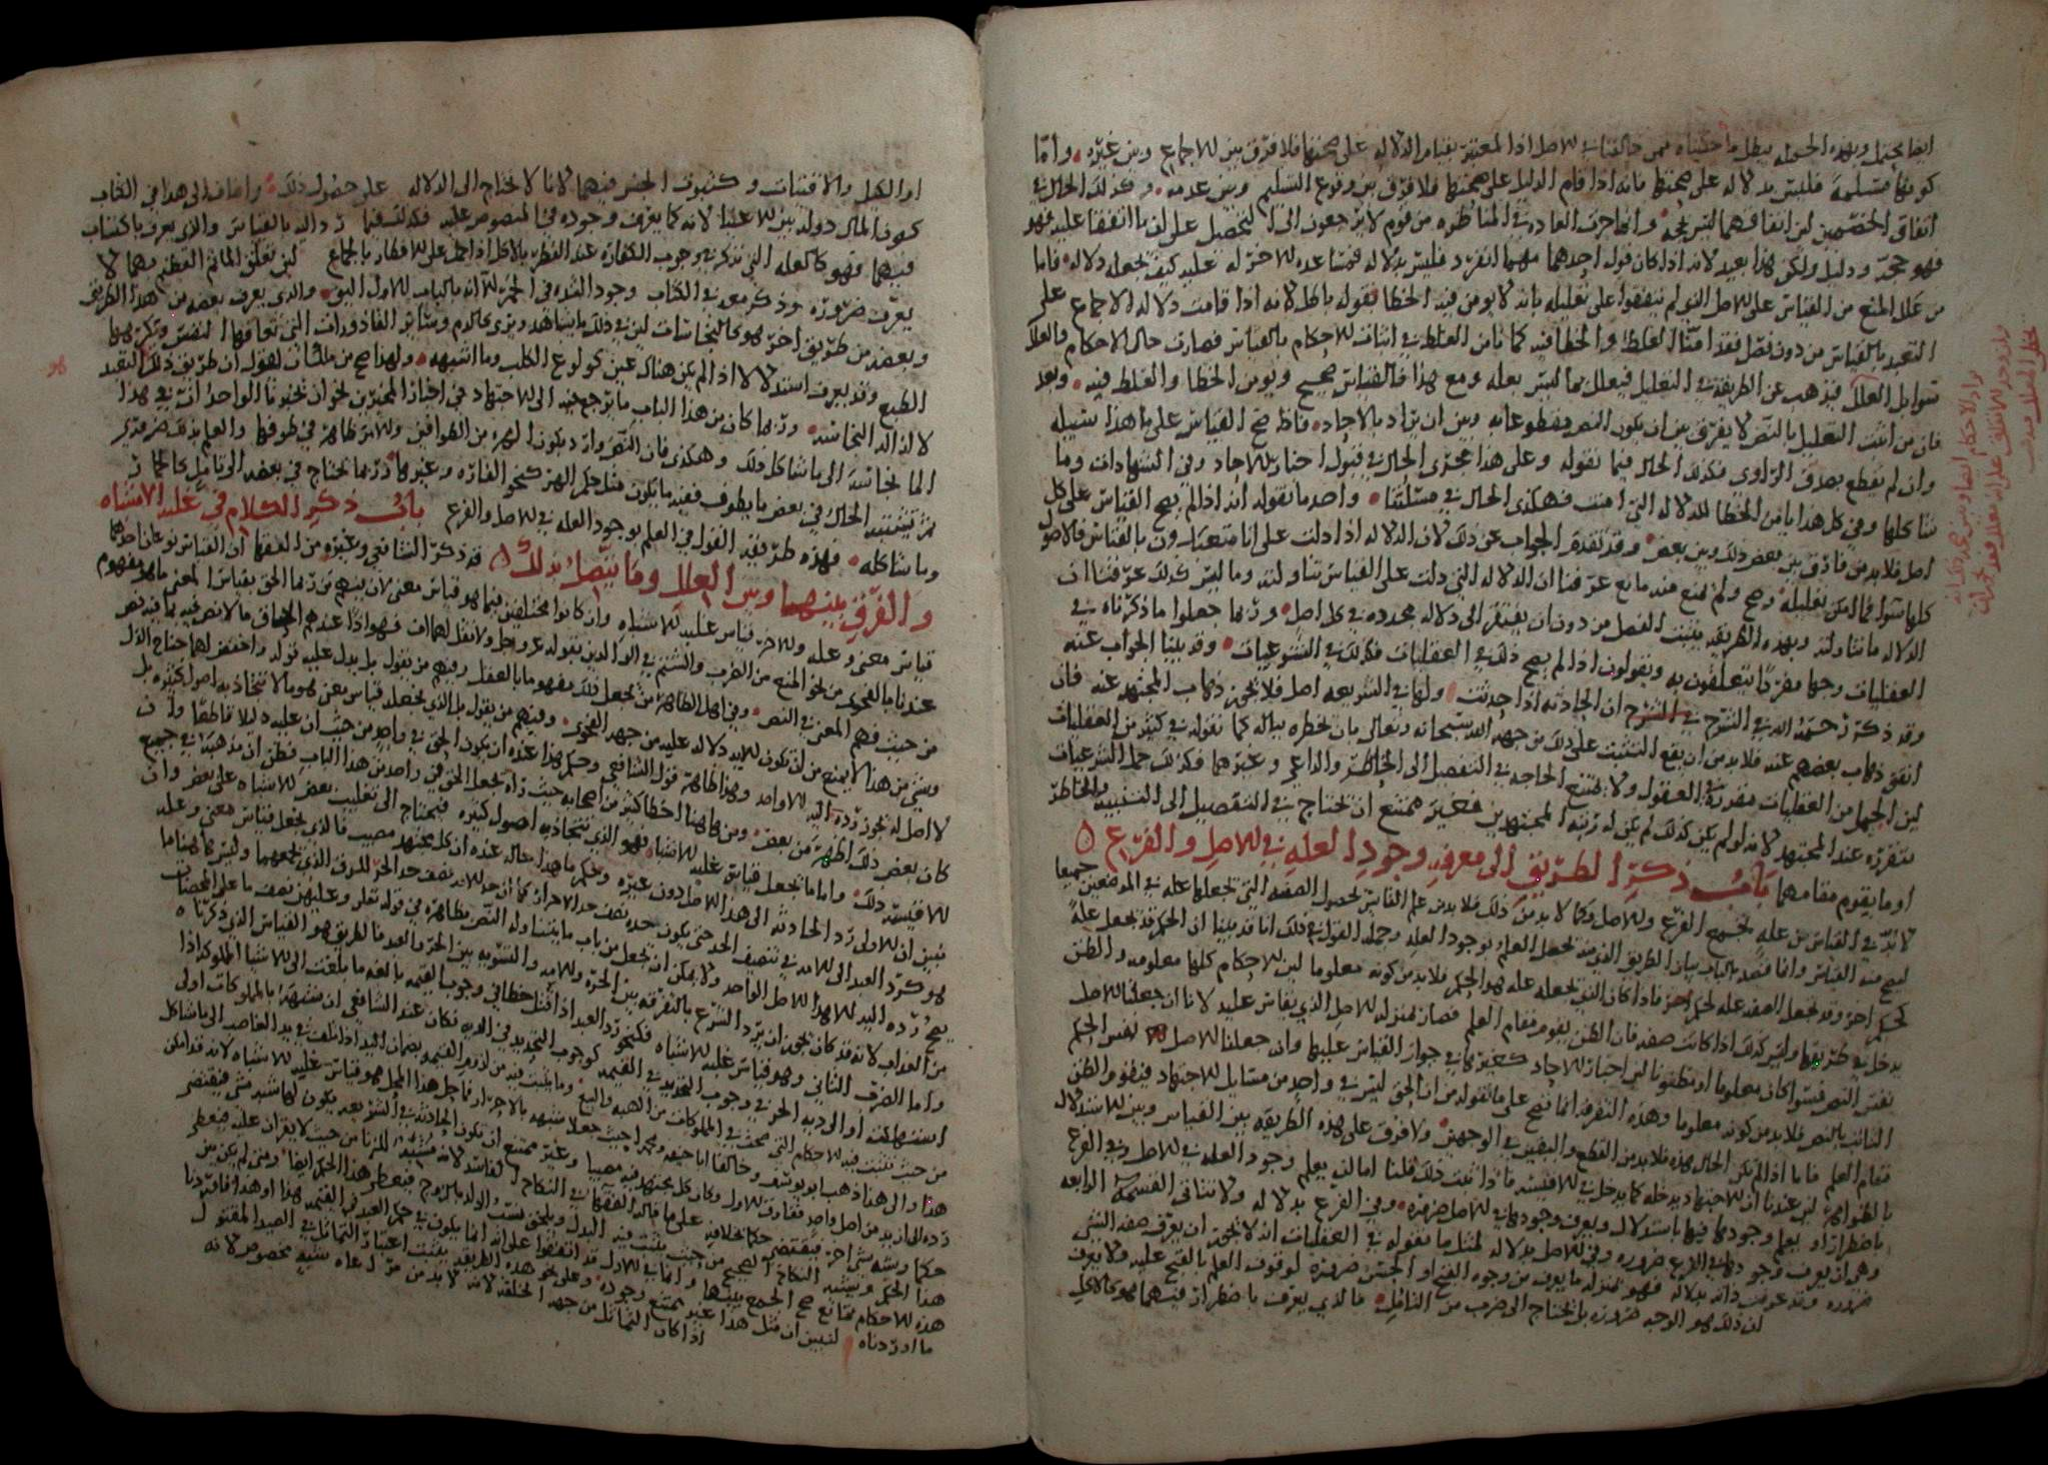 ايفا يحتمل وبهذه الجمله يبطل ما حكيناه عمن خالفنا في الاصل اذا المعتبر بقيام الدلاله على صحتها فلا فرق بين الاجماع وبين غيره وامّا
كونها مسلمة فليس بدلاله على صحتها فانه اذا قام الدليل على صحتها فلا فرق بين وقوع التسليم وبين عدمه وكذلك الحال في
اتفاق الخصمين لان اتفاقهما ليس بحجه وانما جرت العاده في المناظره من قوم لا يرجعون الى تحصيل على ان ما اتفقا عليه فهو
فهو حجه ودليل ولكن هذا بعيد لانه اذا كان قول احدهما مهما انفرد فليس بدلاله فمساعده الاخر له عليه كيف تجعله دلاله فاما
من علل المنع من القياس على الاصل الذي لم يتفقوا على تعليله بانه لا يؤمن فيه الخطا فقوله باطل لانه اذا قامت دلاله الاجماع على
التعبد بالقياس من دون فصل فقد امنّا الغلط والخطا فيه كما نامن الغلط في اثبات الاحكام بالقياس فصارت حال الاحكام والعلل
سوا بل العلل فيذهب عن الطريقه في التعليل فيعلل بما ليس بعله ومع هذا فالقياس صحيح ويؤمن الخطا والغلط فيه وبعد
فان من اثبت التعليل بالنص لا يفرق بين ان يكون النص مقطوعا به وبين ان يراد بالاحاد فاذا صح القياس على ما هذا سبيله
وان لم نقطع بصدق الراوى فكذلك الحال فيما نقوله وعلى هذا مجرى الحال في قبول اخبار الاحاد وفي الشهادات وما
شاكلها وفي كل هذا يامن الخطا للدلاله التي امنت فهكذى الحال في مسئلتنا واحد ما نقوله انه اذا لم يصح القياس على كل
اصل فلا بد من فارق بين بعض ذلك وبين بعض وقد تقدم الجواب عن ذلك لان الدلاله اذا دلت على انا متعبدون بالقياس فالاصول
كلها سوا فما امكن تعليله وصح ولم يمنع منه مانع عرفنا ان الدلاله التي دلت على القياس تناولته وما ليس كذلك عرفنا ان
الدلاله ما تناولته وبهذه الطريقه يثبت الفصل من دون ان يفتقر الى دلاله مجدده في كل اصل وربما جعلوا ما ذكرناه في
العقليات وجها مفردا يتعلقون به ويقولون اذا لم يصح ذلك في العقليات فكذلك في الشرعيات وقد بينا الجواب عنه
وقد ذكر رحمه الله في الشرح ان الحادثه اذا حدثت ولها في الشريعه اصل فلا يجوز ذهاب المجتهد عنه فان
اتفق ذهاب بعضهم عنه فلا بد من ان يقع التثبت على ذلك من جهه الله سبحانه وتعالى بان يخطره بباله كما نقوله في كثير من العقليات
لان الجمل من العقليات مقررة في العقول ولا تمتنع الحاجه في التفصيل الى الخاطر والداعي وغيرهما فكذلك جمل الشرعيات
متقرره عند المجتهد لانه لو لم يكن كذلك لم يكن له رتبه المجتهدين فغير ممتنع ان تحتاج في التفصيل الى التنبيه والخاطر
او ما يقوم مقامهما باب ذكر الطريق الى معرفه وجود العله في الاصل والفرع
لا بدّ في القياس من علهٍ تجمع الفرع والاصل وكما لا بد من ذلك فلا بد من علم القايس بحصول الصفه التي تجعلها عله في الموضعين جميعا
ليصح منه القياس وانما قصد بالباب بيان الطريق الذي منه يحصل العلم بوجود العله وجمله القول في ذلك انا قد بينا ان الحكم قد يجعل علهً
لحكم اخر وقد تجعل الصفه عله لحكم اخر فاذا كان الذي يجعله عله هو الحكم فلا بد من كونه معلوما لان الاحكام كلها معلومه والظن
يدخل في طريقها وليس كذلك اذا كانت صفه فان الظن يقوم مقام العلم فصار بمنزله للاصل الذي يقاس عليه لانا ان جعلنا الاصل
نفس النص فسوا كان معلوما او مظنونا لان اخبار الاحاد كغيرها في جواز القياس عليها وان جعلنا الاصل نفس الحكم
الثابت بالنص فلا بد من كونه معلوما وهذه التفرقه انما تصح على ما نقوله من ان الحق ليس في واحد من مسايل الاجتهاد فيقوم الظن
مقام العلم فاما اذا لم تكن الحال هذه فلا بد من القطع واليقين في الوجهين ولا فرق على هذه الطريقه بين القياس وبين الاستدلال
بالظواهر لان عندنا ان الاجتهاد يدخله كما يدخل في الاقيسه فاذا ثبت ذلك قلنا اما ان يعلم وجود العله في الاصل وفي الفرع
باضطرار او يعلم وجودها فيها باستدلال ويعرف وجودها في الاصل ضرورة وفي الفرع بدلاله ولا تتاتى القسمه الرابعه
وهي ان يعرف وجودها في الفرع ضروره وفي الاصل بدلاله لمثل ما نقوله في العقليات انه لا يجوز ان يعرف صفه الشي
ضروره وقد عرفت ذاته بدلاله فهو بمنزله ما يعرف من وجوه القبح او الحسن ضرورة لوقوف العلم بالقبح عليه فلا يعرف
ان ذلك هو الوجه ضروره بل يحتاج الى ضرب من التامل فالذي يعرف باضطرار فيهما فهو كالاكل
او الكيل والاقتيات وكثبوت الجنس فيهما لانا لا نحتاج الى الدلاله على حصول ذلك واضاف الى هذا في الكتاب
كون المال دولة بين الاغنيا لانه كما يعرف وجوده في المنصوص عليه فكذلك فيما رد اليه بالقياس والذي يعرف باكتساب
فيهما فهو كالعله التي تذكر في وجوب الكفاره عند الفطر بالاكل اذا حمل على الافطار بالجماع لان تعلق الماثم العظيم بهما لا
يعرف ضروره وذكر معه في الكتاب وجود الشده في الخمر الا انه بالباب الاول اليق والذي يعرف بعضه من هذا الطريق
وبعضه من طريق اخر فهو كالنجاسات لان في ذلك ما يشاهد ويرى كالدم وساير القاذورات التي تعافها النفس وتكرهها
الطبع وقد يعرف استدلالا اذا لم يكن هناك عين كولوع الكلب وما اشبهه ولهذا صح من مثبت القول ان طريق ذلك التعبد
لا لازاله النجاسه وربما كان من هذا الباب ما يرجع فيه الى الاجتهاد في اخبار المخبرين نحو ان يخبرنا الواحد ان في هذا
الما نجاسة الى ما شاكل ذلك وهكذى فان النص وارد بكون الهره من الطوافين وللامر ظاهر في طوفها والعلم بذلك ضروره
ثم تشتبه الحال في بعض ما يطوف ففيه ما يكون مثل حكم الهر كنحو الفاره وغيرها فربما نحتاج في بعضه الى تامل كما لحمار
وما شاكله فهذه طريقه القول في العلم بوجود العله في الاصل والفرع باب ذكر الكلام في غلبه الاشباه
والفرق بينهما وبين العلل وما يتصل بذلك
قد ذكر الشافعي وغيره من الفقها ان القياس نوعان احدهما
قياس معنى وعله والاخر قياس غلبه الاشباه وان كانوا مختلفين فيما هو قياس معنى لان فيهم من ربما الحق بقياس المعنى ما هو مفهوم
عندنا بالفحوى من نحو المنع من الضرب والشتم في الوالدين بقوله عز وجل ولا تقل لهما اف فهو اذاً عندهم الحاق ما لا نص فيه بما فيه نص
من حيث فهم المعنى في النص وفي اهل الظاهر من يجعل ذلك مفهوما بالعقل وفيهم من يقول بل يدل عليه قوله واخفض لهما جناح الذل
وشي من هذا لا يمنع من ان تكون الايه دلاله عليه من جهه الفحوى وفيهم من يقول بل الذي يجعله قياس معنى هو ما لا تتجاذبه اصول كثيره بل
لا اصل له يجوز رده اليه الا واحد وهذا ظاهر قول الشافعي وحكى هذا عنده ان يكون الحق في واحد من حيث ان عليه دليلا قاطعا وان
كان بعض ذلك اظهر من بعض ومن هاهنا اخطا كثير من اصحابه حيث راه يجعل الحق في واحد من هذا الباب فظن ان مذهبه في جميع
الاقيسه ذلك واما ما يجعل قياس غلبه الاشباه فهو الذي تتجاذبه اصول كثيره فيحتاج الى تغليب بعض الاشباه على بعض وان
نبين ان الاولى رد الحادثه الى هذا الاصل دون غيره وحكم ما هذا حاله عنده ان كل مجتهد مصيب فالذي يجعل قياس معنى وعله
فهو كرد العبد الى الامه في تنصيف الحد حتى يكون حده نصف حد الاحرار كما ان حد الامه نصف حد الحر للرق الذي يجمعهما وليس ها هنا ما
يصح رده اليه الا هذا الاصل الواحد ولا يمكن ان تجعل من باب ما يتناوله النص بظاهره في قوله تعلى وعليهن نصف ما على المحصنات
من العذاب لانه قد كان يجوز ان يرد الشرع بالتفرقه بين الحره والامه والتسويه بين الحر والعبد فالطريق هو القياس الذي ذكرناه
واما الضرب الثاني وهو قياس غلبه الاشباه فكنحو رد العبد اذا قتل خطا في وجوب القيمه بالغه ما بلغت الى الاشيا المملوكه اذا
استهلكت او الى ديه الحر في وجوب التحديد في القيمه كوجوب التحديد في الديه فكان عند الشافعي ان شبهه بالمملوكات اولى
من حيث تثبت فيه الاحكام التي تصح في المملوكات من الهبه والبيع وما يثبت فيه من لزوم القيمه بضمان اليد اذا تلفت في يد الغاصب الى ما شاكل
هذا والى هذا ذهب ابو يوسف وخالفا ابا حنيفه ومحمدا حيث جعلا شبهه بالاحرار فما حل هذا المحل هو قياس غلبه الاشباه لانه قد امكن
رده الى ازيد من اصل واحد ففارق الاول وكان كل مجتهد فيه مصيبا وغير ممتنع ان تكون الحادثه في الشريعه يكون لها شبه بشي فيقتضى
حكما وشبه بشي اخر فيقتضى حكما بخلافه على ما قاله الفقها في النكاح الفاسد لانه يشبه الزنا من حيث لا يقران عليه فيعطى
هذا الحكم ويشبه النكاح الصحيح من حيث يثبت فيه البدل ويلحق نسب الولد بالزوج فيعطى هذا الحكم ايضا ومتى لم يكن بين
هذه الاحكام تمانع صح الجمع بينها وانما في الاول قد اتفقوا على انه انما يكون في حكم العبد في القيمه هذا او هذا فافترقا
ما اوردناه لنبين ان مثل هذا غير ممتنع وجوده وعلى نحو هذه الطريقه يثبت اعتبار التماثل في الصيد المقتول
اذا كان التماثل من جهه الخلقه لانه لا بد من مراعاه شبه مخصوص لانه